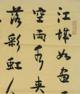 江城如畫
空兩水夾
落彩虹人